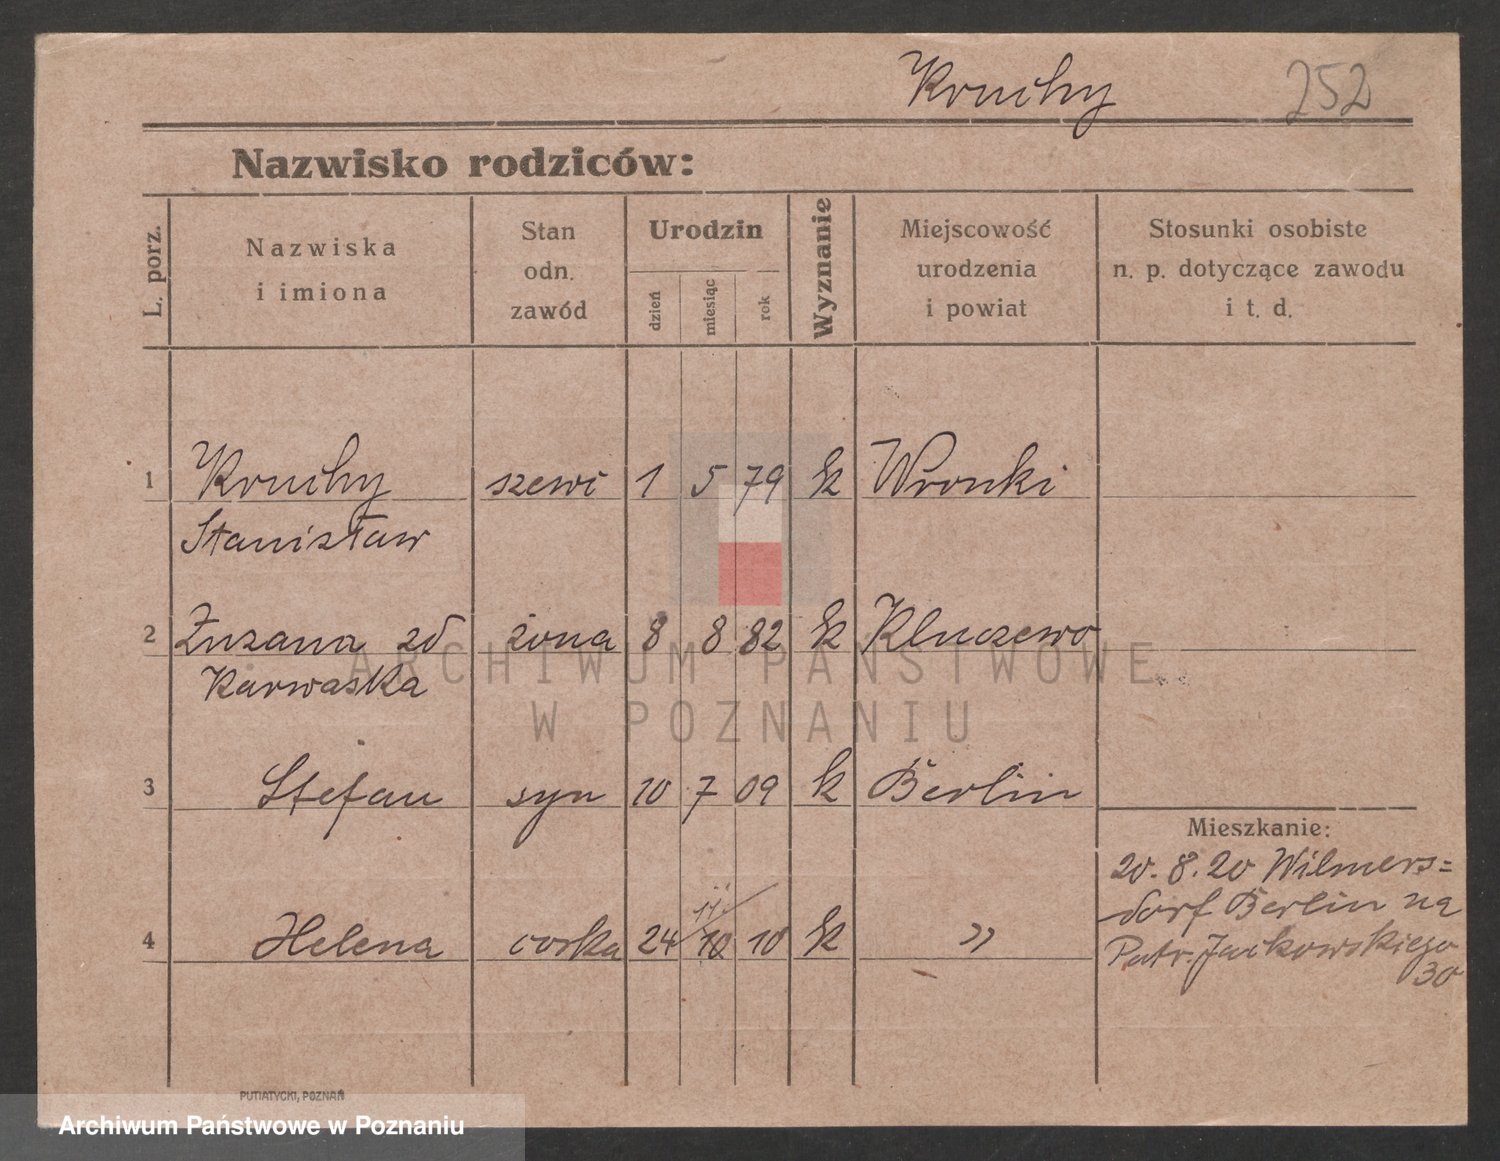 Kruchy 252
Nazwisko rodziców:
L. porz.
Nazwiska
i imiona
Stan
odn.
zawód
Urodzin
dzień
miesiąc
rok
Wyznanie
Miejscowość
urodzenia
i powiat
Stosunki osobiste
n. p. dotyczące zawodu
i t. d.
1 Kruchy szewc 1 5 79 k Wronki
Stanisław
2 Zuzana zd żona 8 8 82 k Kluczewo
Karwaska
3 Stefan syn 10 7 09 k Berlin
Mieszkanie:
20.8.20 Wilmers=
dorf Berlin na
Patr. Jackowskiego
30
11.
4 Helena corka 24 10 10 k "
ARCHIWUM PAŃSTWOWE
W POZNANIU
PUTIATYCKI, POZNAŃ
Archiwum Państwowe w Poznaniu